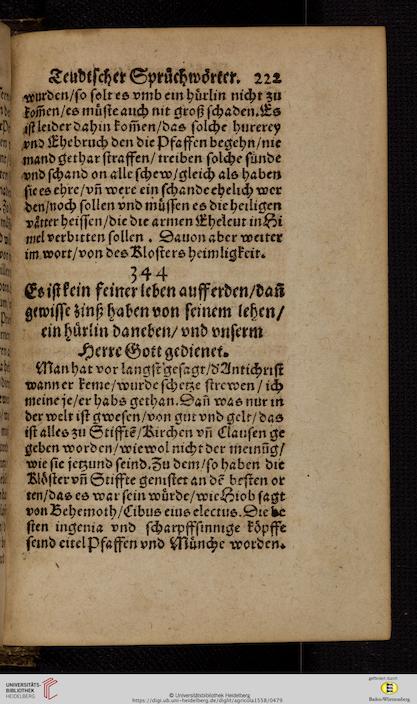 Teudtscher Sprüchwörter. 222
wurden/so solt es vmb ein hürlin nicht zu
kom̃en/es müste auch nit groß schaden.Es
ist leider dahin kom̃en/das solche hurerey
vnd Ehebruch den die Pfaffen begehn/nie
mand gethar straffen/ treiben solche sünde
vnd schand on alle schew/gleich als haben
sie es ehre/vñ were ein schande ehelich wer
den/noch sollen vnd müssen es die heiligen
vätter heissen/die die armen Eheleut in Hi
mel verbitten sollen . Dauon aber weiter
im wort/von des Klosters heimligkeit.
344
Es ist kein feiner leben auff erden/dañ
gewisse zinß haben von seinem lehen/
ein hürlin daneben/ vnd vnserm
Herre Gott gedienet.
Man hat vor langst gesagt/d'Antichrist
wann er keme/wurde schetze strewen/ ich
meine je/er habs gethan.Dañ was nur in
der welt ist gwesen/von gut vnd gelt/das
ist alles zu Stifftē/Kirchen vñ Clausen ge
geben worden/wiewol nicht der meinūg/
wie sie jetzund seind.Zu dem/so haben die
Klöster vñ Stiffte genistet an dē besten or
ten/das es war sein würde/wie Hiob sagt
von Behemoth/Cibus eius electus.Die be
sten ingenia vnd scharpffsinnige köpffe
seind eitel Pfaffen vnd Münche worden.
UNIVERSITÄTS-
BIBLIOTHEK
HEIDELBERG
© Universitätsbibliothek Heidelberg
https://digi.ub.uni-heidelberg.de/diglit/agricola1558/0479
gefördert durch
Baden-Württemberg